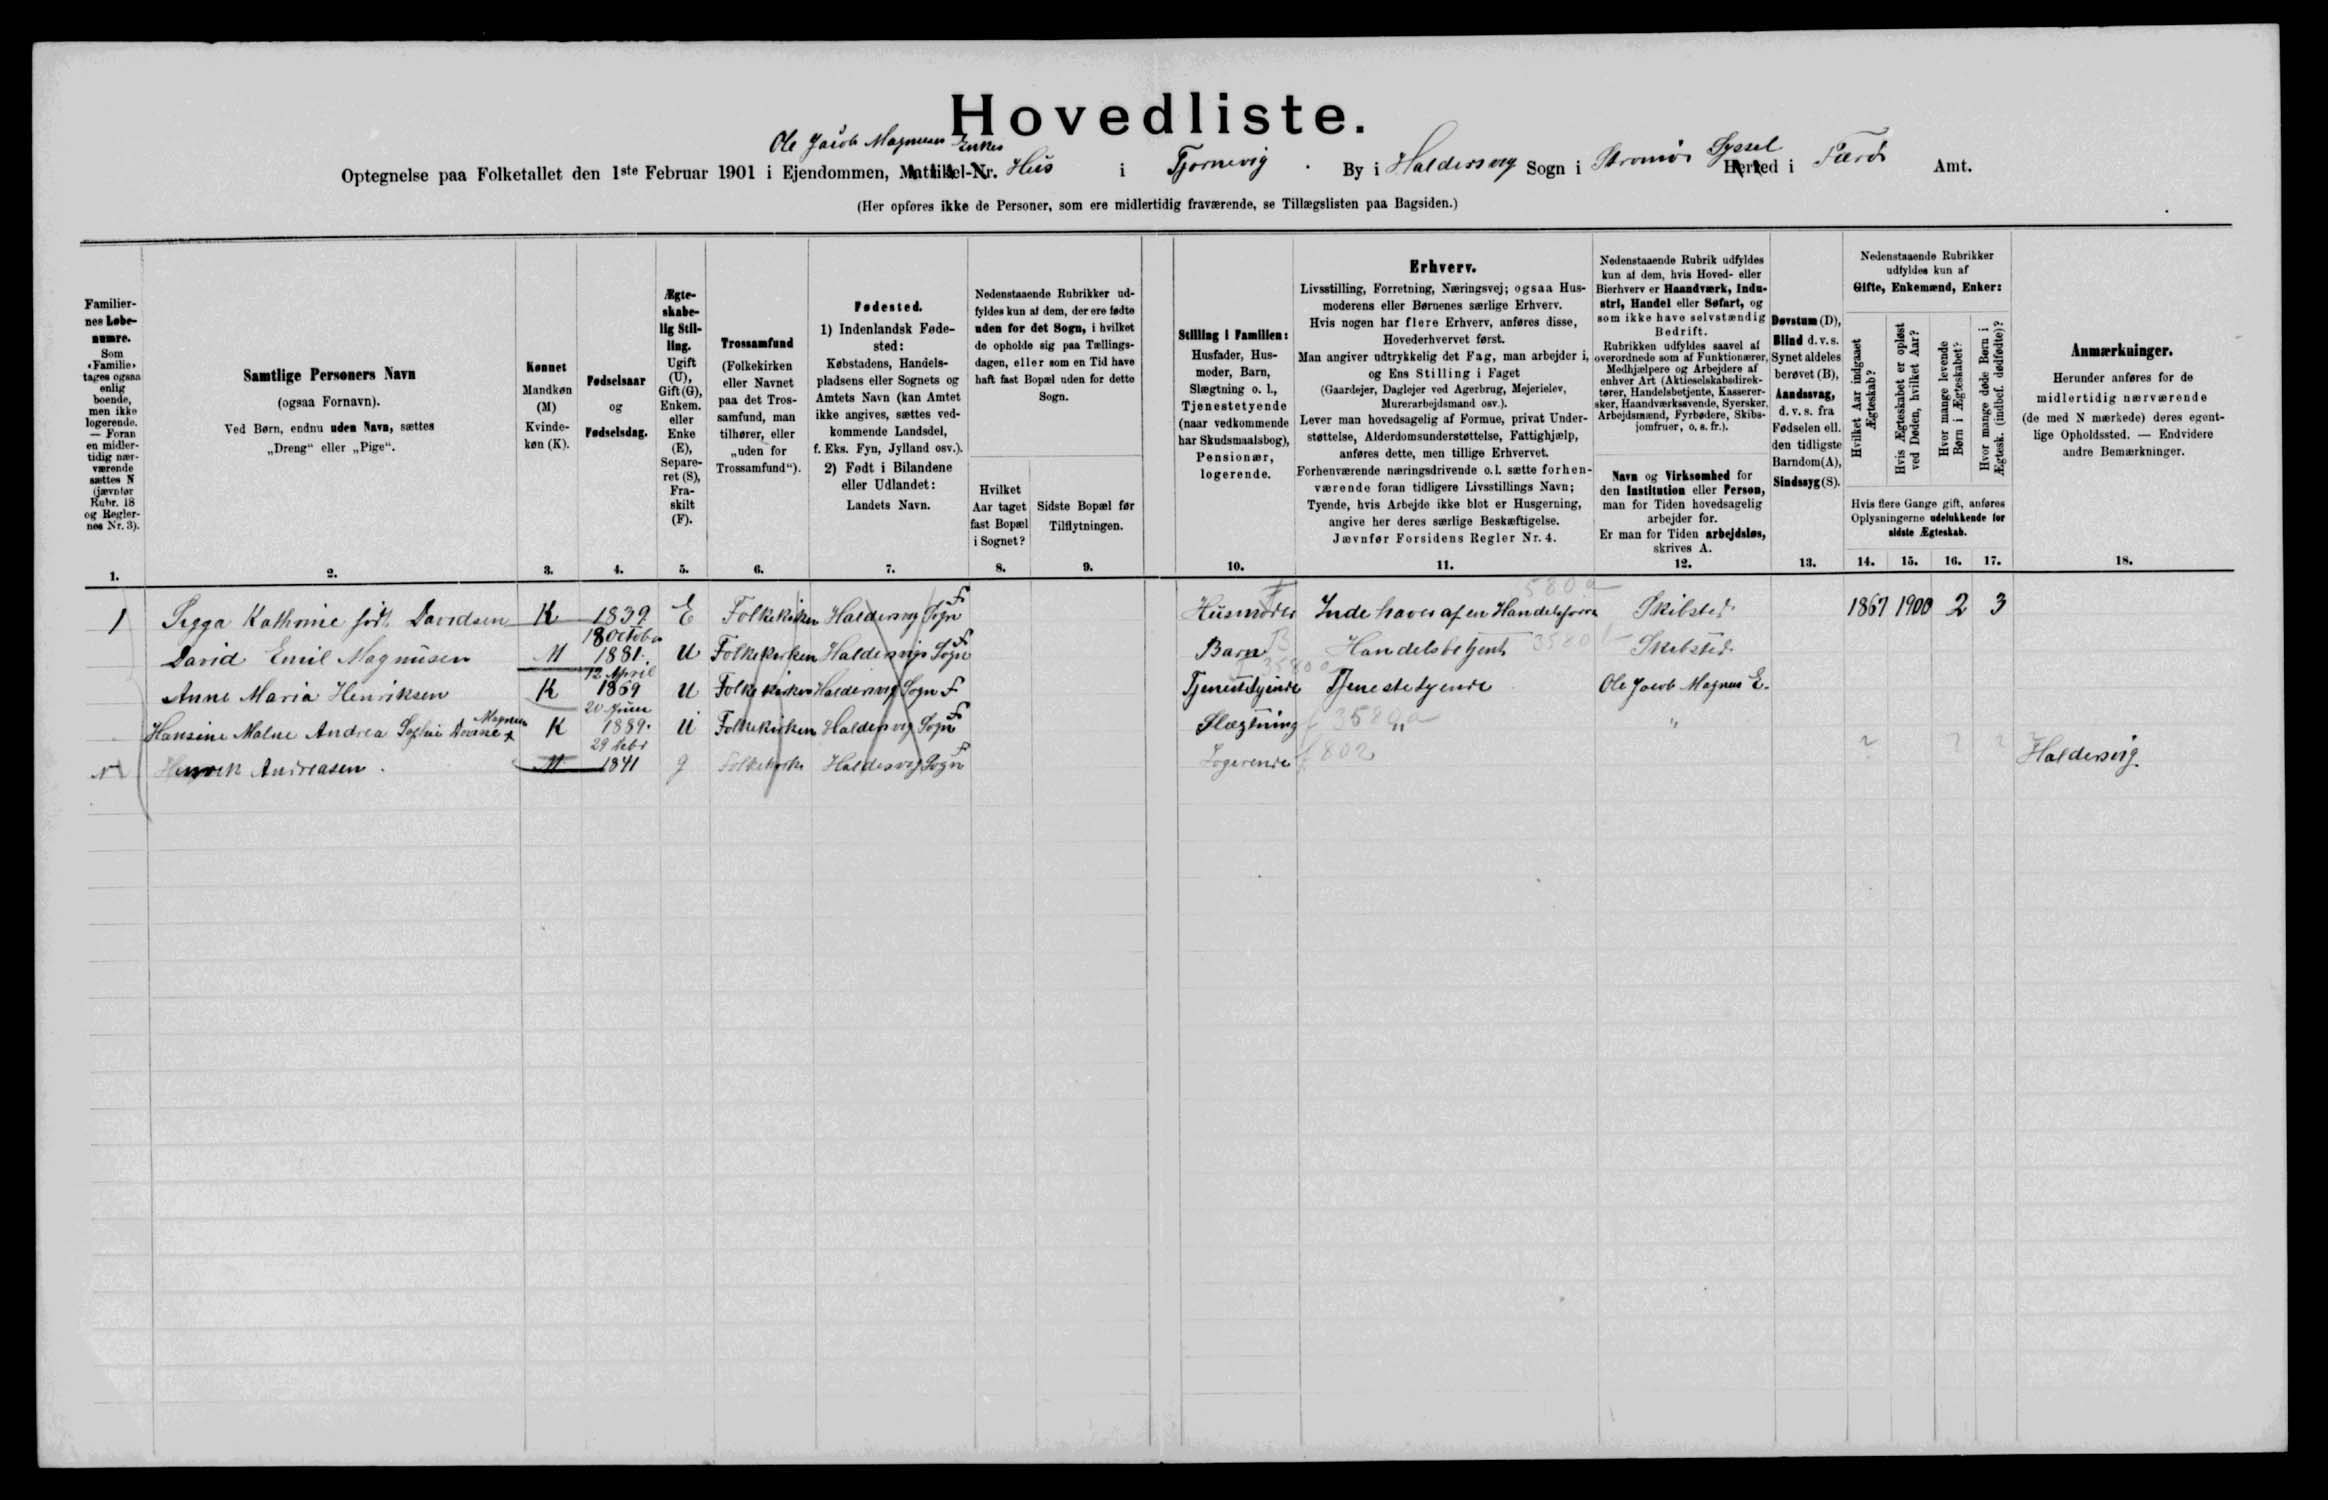 Hovedliste.
Ole Jacob Magnusen Enkes
Optegnelse paa Folketallet den 1ste Februar 1901 i Ejendommen, Matrikel-Nr. Hus i Tjornevig . By i Haldersvig Sogn i Strømø Syssel Herred i Færø Amt.
(Her opføres ikke de Personer, som ere midlertidig fraværende, se Tillægslisten paa Bagsiden.)
Familier-
nes Løbe-
numre.
Som
«Familie»
tages ogsaa
enlig
boende,
men ikke
logerende.
— Foran
en midler-
tidig nær-
værende
sættes N
(jævnfør
Rubr. 18
og Regler-
nes Nr. 3).
1.
Samtlige Personers Navn
(ogsaa Fornavn).
Ved Børn, endnu uden Navn, sættes
„Dreng“ eller „Pige“.
2.
Kønnet
Mandkøn
(M)
Kvinde-
køn (K).
3.
Fødselsaar
og
Fødselsdag.
4.
Ægte-
skabe-
lig Stil-
ling.
Ugift
(U),
Gift (G),
Enkem.
eller
Enke
(E),
Separe-
ret (S),
Fra-
skilt
(F).
5.
Trossamfund
(Folkekirken
eller Navnet
paa det Tros-
samfund, man
tilhører, eller
„uden for
Trossamfund“).
6.
Fødested.
1) Indenlandsk Føde-
sted:
Købstadens, Handels-
pladsens eller Sognets og
Amtets Navn (kan Amtet
ikke angives, sættes ved-
kommende Landsdel,
f. Eks. Fyn, Jylland osv.).
2) Født i Bilandene
eller Udlandet:
Landets Navn.
7.
Nedenstaaende Rubrikker ud-
fyldes kun af dem, der ere fødte
uden for det Sogn, i hvilket
de opholde sig paa Tællings-
dagen, eller som en Tid have
haft fast Bopæl uden for dette
Sogn.
Hvilket
Aar taget
fast Bopæl
i Sognet?
8.
Sidste Bopæl før
Tilflytningen.
9.
Stilling i Familien:
Husfader, Hus-
moder, Barn,
Slægtning o. l.,
Tjenestetyende
(naar vedkommende
har Skudsmaalsbog),
Pensionær,
logerende.
10.
Erhverv.
Livsstilling, Forretning, Næringsvej; ogsaa Hus-
moderens eller Børnenes særlige Erhverv.
Hvis nogen har flere Erhverv, anføres disse,
Hovederhvervet først.
Man angiver udtrykkelig det Fag, man arbejder i,
og Ens Stilling i Faget
(Gaardejer, Daglejer ved Agerbrug, Mejerielev,
Murerarbejdsmand osv.).
Lever man hovedsagelig af Formue, privat Under-
støttelse, Alderdomsunderstøttelse, Fattighjælp,
anføres dette, men tillige Erhvervet.
Forhenværende næringsdrivende o. l. sætte forhen-
værende foran tidligere Livsstillings Navn;
Tyende, hvis Arbejde ikke blot er Husgerning,
angive her deres særlige Beskæftigelse.
Jævnfør Forsidens Regler Nr. 4.
11.
Nedenstaaende Rubrik udfyldes
kun af dem, hvis Hoved- eller
Bierhverv er Haandværk, Indu-
stri, Handel eller Søfart, og
som ikke have selvstændig
Bedrift.
Rubrikken udfyldes saavel af
overordnede som af Funktionærer,
Medhjælpere og Arbejdere af
enhver Art (Aktieselskabsdirek-
tører, Handelsbetjente, Kasserer-
sker, Haandværkssvende, Syersker,
Arbejdsmænd, Fyrbødere, Skibs-
jomfruer, o. s. fr.).
Navn og Virksomhed for
den Institution eller Person,
man for Tiden hovedsagelig
arbejder for.
Er man for Tiden arbejdsløs,
skrives A.
12.
Døvstum (D),
Blind d. v. s.
Synet aldeles
berøvet (B),
Aandssvag,
d. v. s. fra
Fødselen ell.
den tidligste
Barndom (A),
Sindssyg (S).
13.
Nedenstaaende Rubrikker
udfyldes kun af
Gifte, Enkemænd, Enker:
Hvilket Aar indgaaet
Ægteskab?
Hvis Ægteskabet er opløst
ved Døden, hvilket Aar?
Hvor mange levende
Børn i Ægteskabet?
Hvor mange døde Børn i
Ægtesk. (indbef. dødfødte)?
Hvis flere Gange gift, anføres
Oplysningerne udelukkende for
sidste Ægteskab.
14. 15. 16. 17.
Anmærkninger.
Herunder anføres for de
midlertidig nærværende
(de med N mærkede) deres egent-
lige Opholdssted. — Endvidere
andre Bemærkninger.
18.
1 Sigga Kathrine født Davidsen K 1839 18 October E Folkekirken Haldersvig Sogn F Husmoder Indehaver af en Handelsforre Skibsted 1867 1900 2 3
David Emil Magnusen M 1881 12 April U Folkekirken Haldersvig Sogn F Barn Handelsbetjent Skibsted
Anne Maria Henriksen K 1869 20 Juni U Folkekirken Haldersvig Sogn F Tjenestetyende Tjenestetyende Ole Jacob Magnus E.
Hansine Malne Andrea Sophie Magnusen K 1889 29 Febr U Folkekirken Haldersvig Sogn F Slægtning 3580a „ „
N Henrik Andreasen. M 1841 g Folkekirke Haldersvig Sogn Logerende 802 ? ? ? Haldersvig.